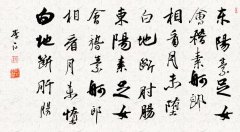 东陽素足女
會稽素舸郎
相看月未墮
白地断肝腸
東陽素足女
會稽素舸郎
相看月未墮
白地断肝腸